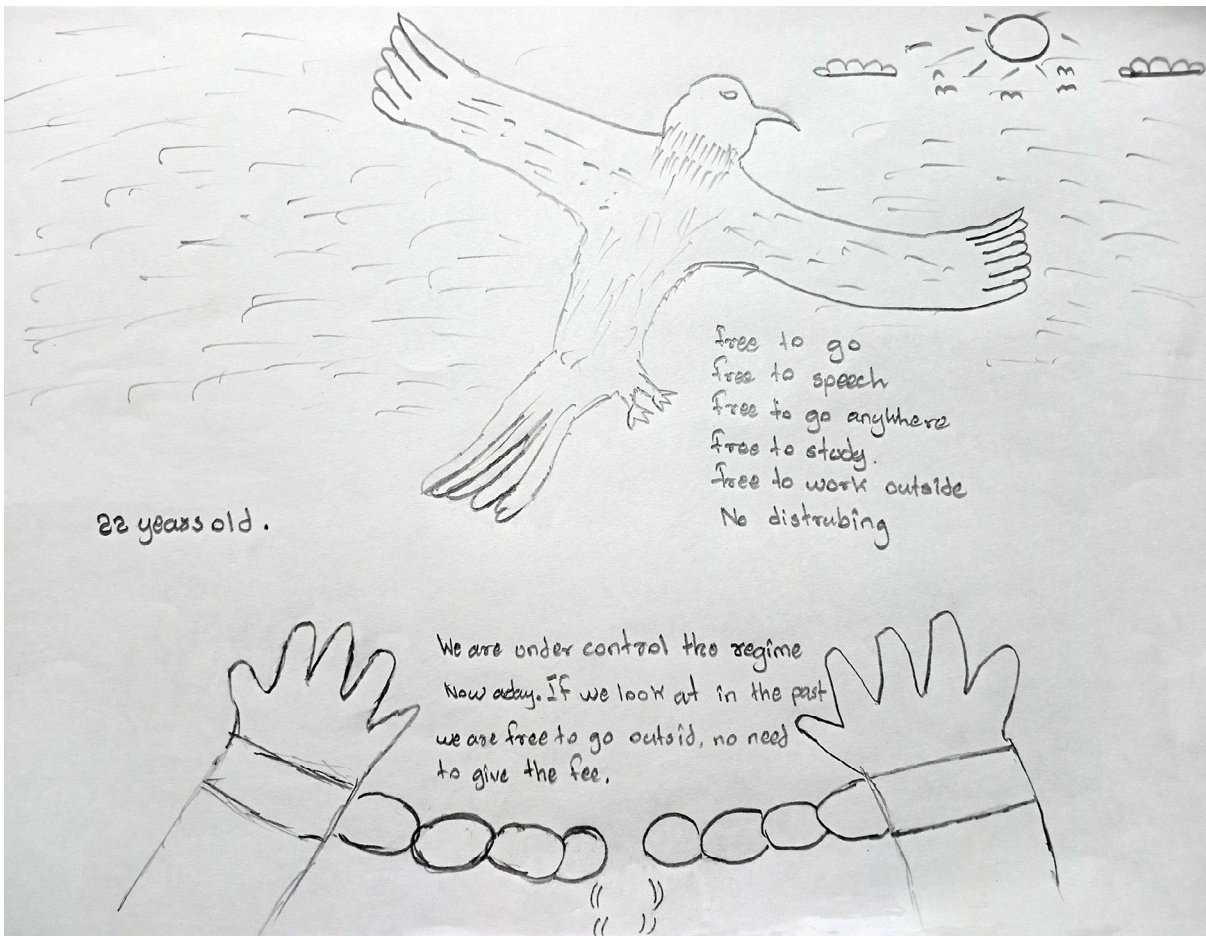 free to go
free to speech
free to go anywhere
free to study.
free to work outside
No distrubing
22 years old.
We are under control the regime
Now aday. If we look at in the past
we are free to go outsid, no need
to give the fee.